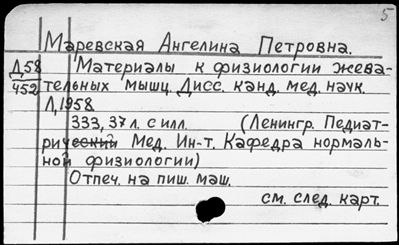 5
Маревская Ангелина Петровна.
Д58 Материалы к физиологии жева-
452 тельных мышц. Дисс. канд. мед. наук.
Л, 1958.
333, 37 л. с илл. (Ленингр. Педиат-
рический Мед. Ин-т. Кафедра нормаль-
ной физиологии)
Отпеч. на пиш. маш.
см. след. карт.